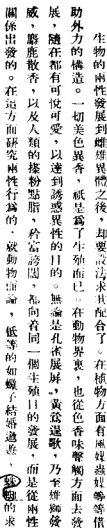 生物的兩性發展到雌雄異體之後，却要設法求其配合了。在植物方面有風媒蟲媒等等
助外力的構造。一切美色異香，祇是爲了生殖而已。在動物界裏，也從色香味聲觸方面去發
展，隨在都有可悅可愛，以達到誘惑異性的目的。無論是孔雀展屏，黃鶯邀歌，乃至雄獅發
威，麝鹿散香，以及人類的搽粉點脂，矜富誇闊，都向着同一個生殖目的發展，而是從兩性
關係出發的。在這方面研究兩性行爲的，就動物而論，低等的如蠍子結婚遊進，的求